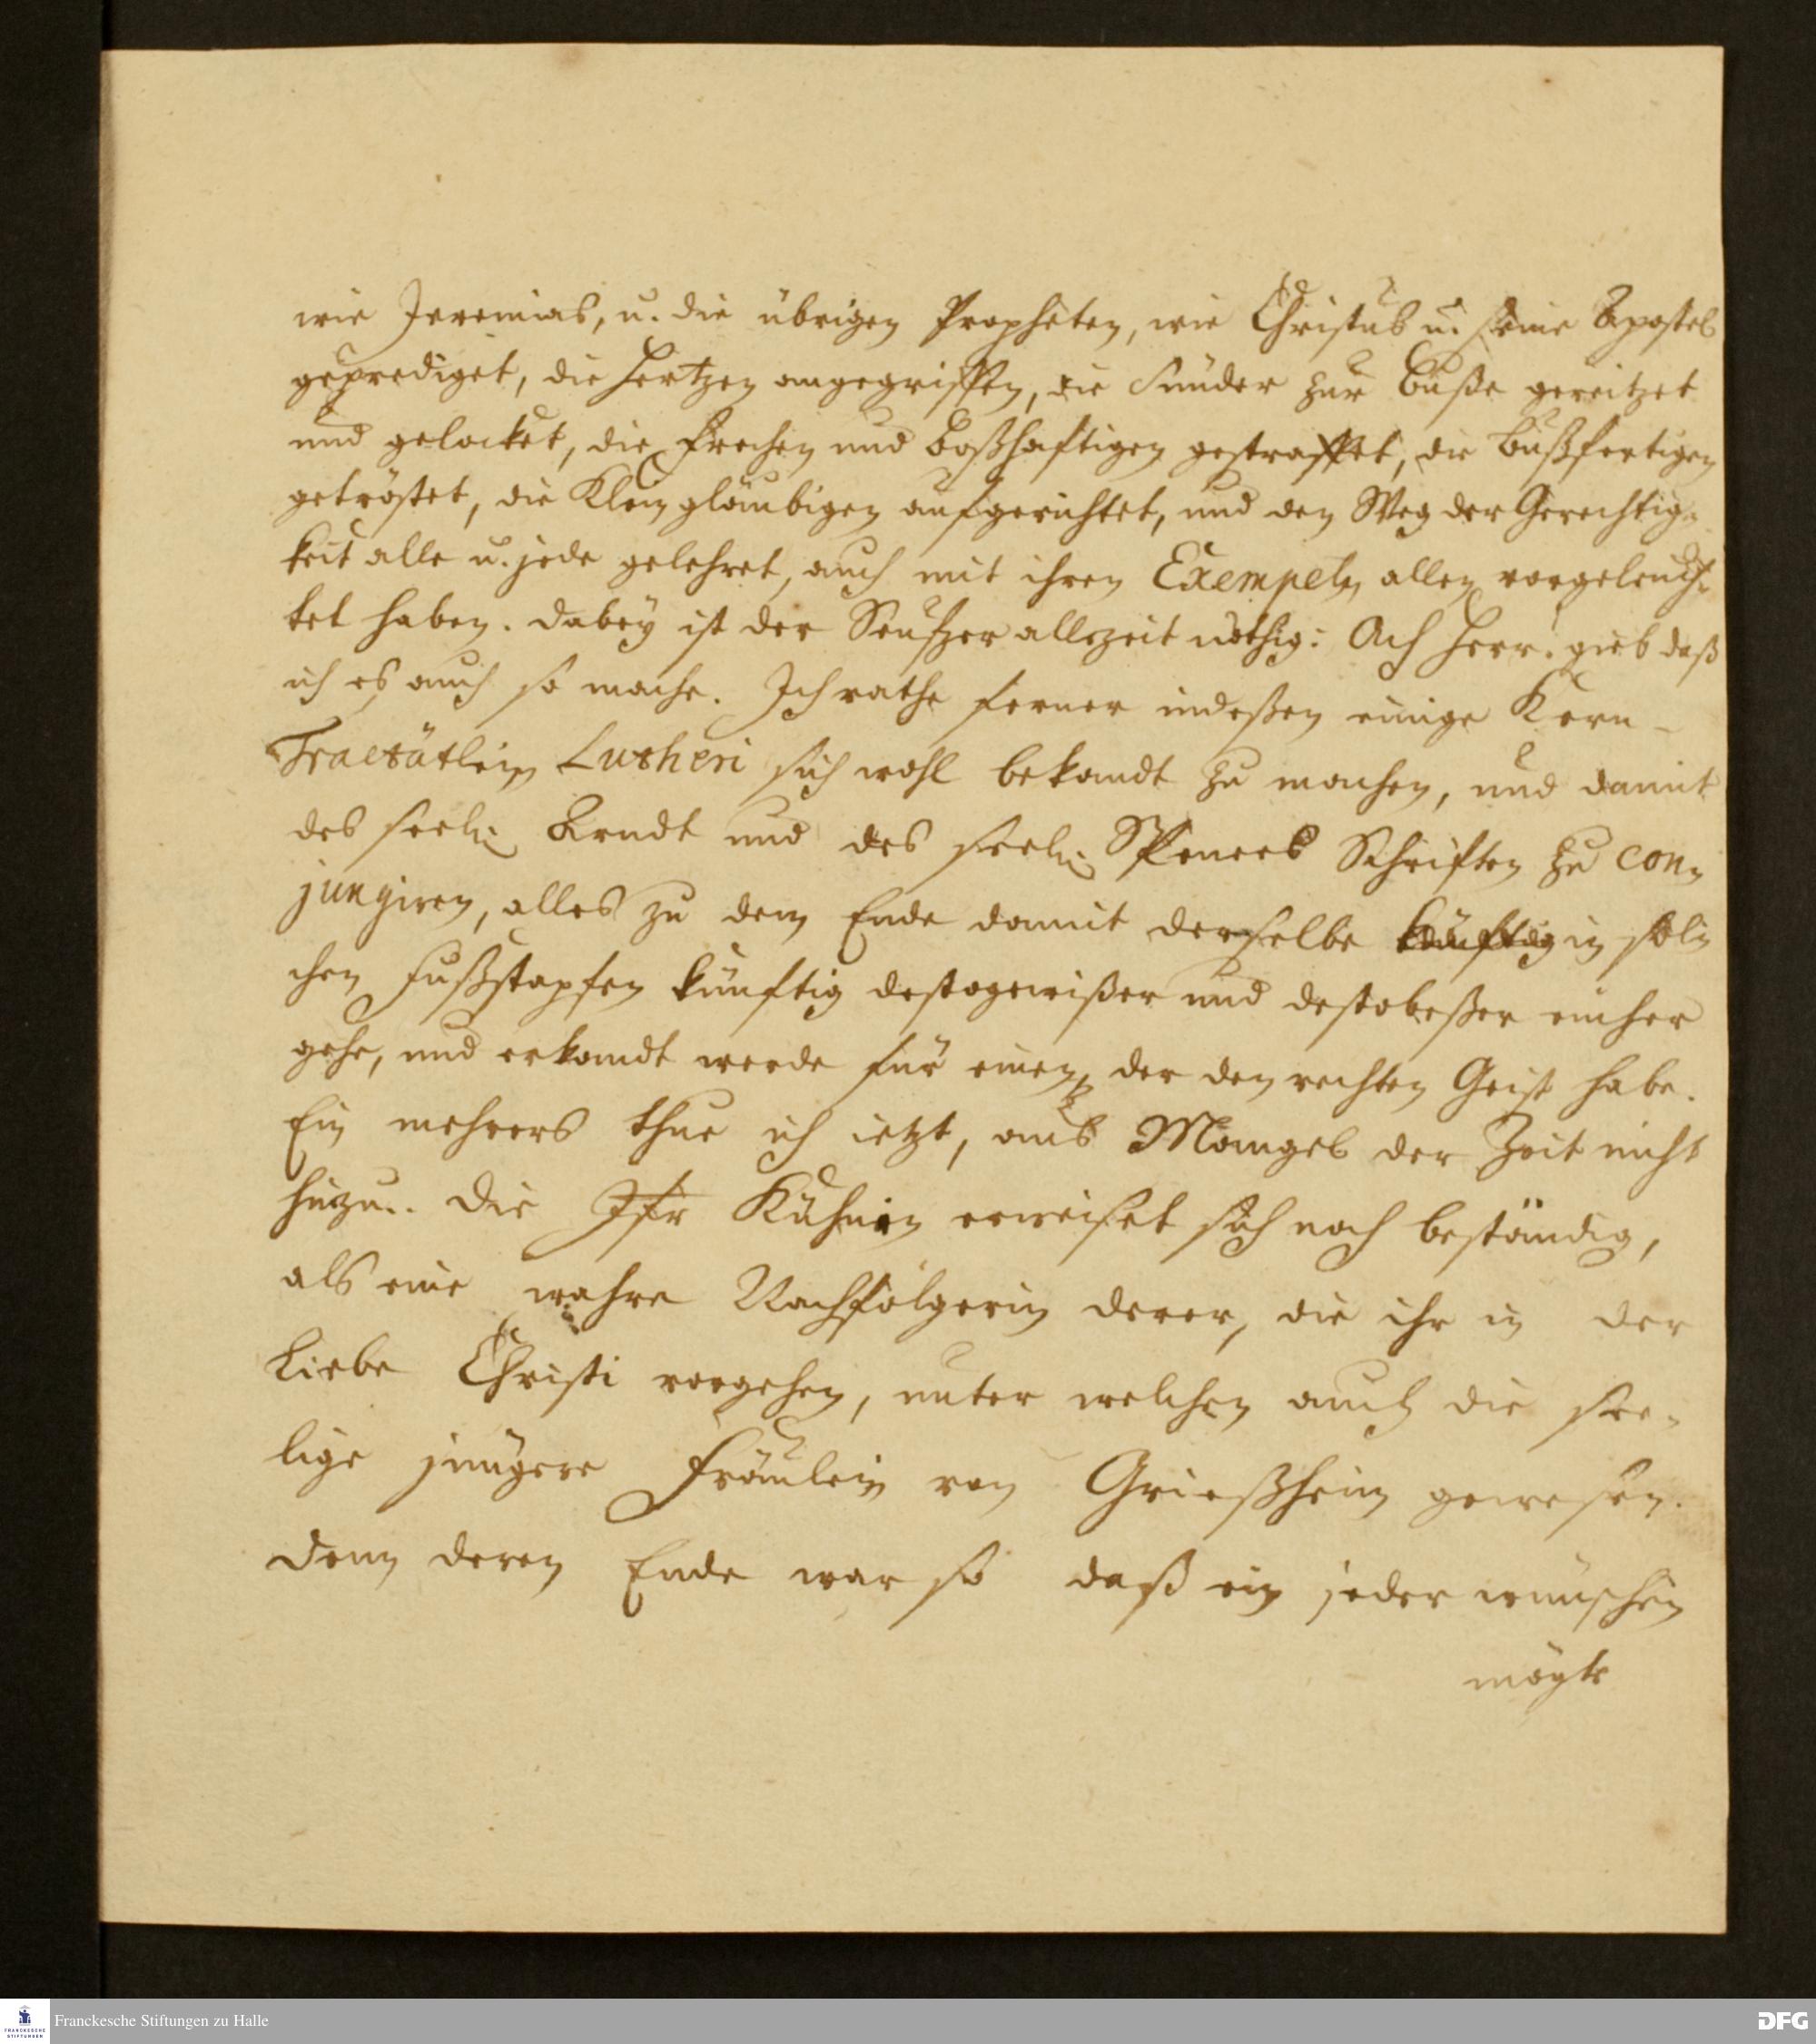 wie Jeremias, u. die übrigen Propheten, wie Christus u. seine Apostel
geprediget, die Hertzen angegriffen, die Sünder zur Buße gereitzet
und gelocket, die Frechen und Boßhaftigen gestraffet, die Bußfertigen
getröstet, die Kleingläubigen aufgerichtet, und den Weg der Gerechtig-
keit alle u. jede gelehret, auch mit ihren Exempeln allen vorgeleuch-
tet haben. Dabey ist der Seufzer allezeit nöthig: Ach Herr! gieb daß
ich es auch so mache. Ich rathe ferner indeßen einige Kern-
Tractätlein Lutheri sich wohl bekandt zu machen, und damit
des seel. Arndt und des seel. Speners Schriften zu con-
jungiren, alles zu dem Ende damit derselbe künftig in sol-
chen Fußstapfen künftig destogewißer und destobeßer einher
gehe, und erkandt werde für einen, der den rechten Geist habe.
Ein mehrers thue ich ietzt, aus Mangel der Zeit nicht
hinzu. Die Jfr Kühnin erweiset sich noch beständig,
als eine wahre Nachfolgerin derer, die ihr in der
Liebe Christi vorgehen, unter welchen auch die see-
lige jüngere Fräulein von Grießheim gewesen.
Denn deren Ende war so daß ein jeder wünschen
mögte
Franckesche Stiftungen zu Halle
FRANCKESCHE STIFTUNGEN
DFG